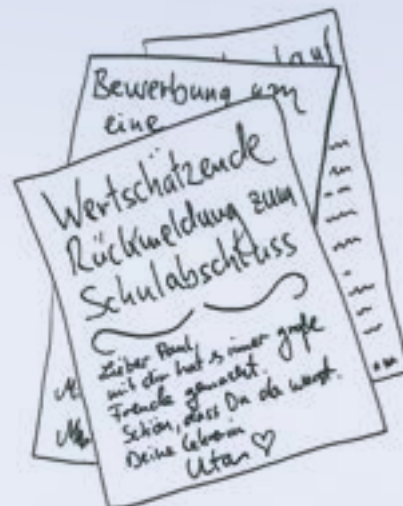 Bewerbung um
eine
Wertschätzende
Rückmeldung zum
Schulabschluss
Lieber Paul,
mit dir hat s immer große
Freude gemacht.
Schön, dass Du da warst.
Deine Lehrerin